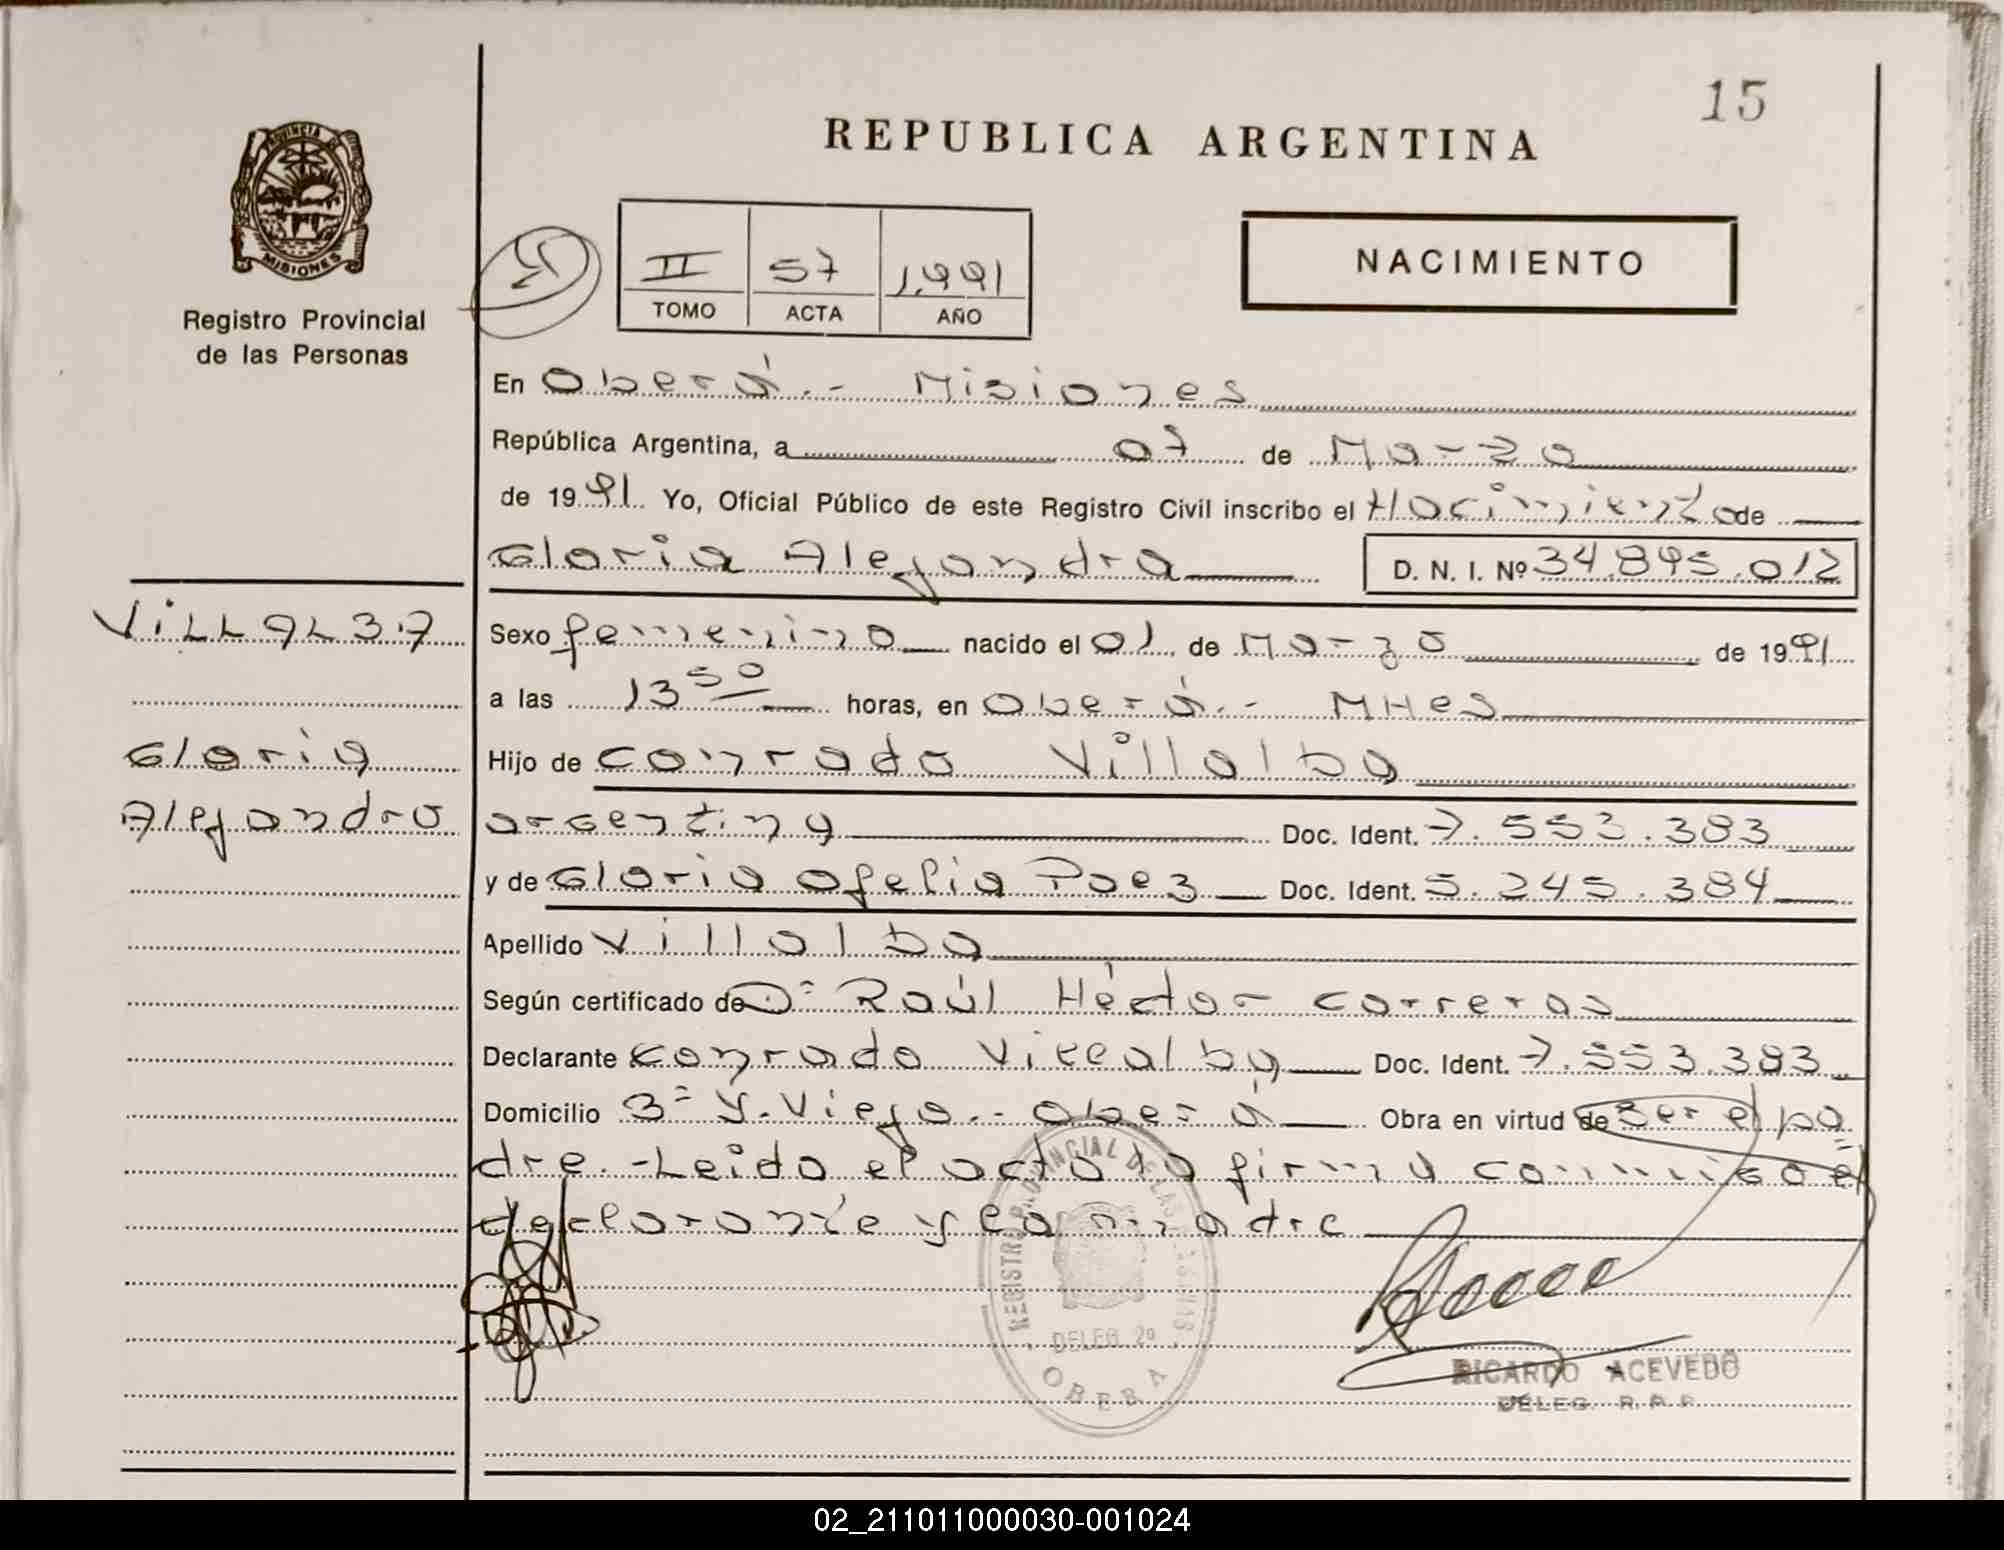 15
REPUBLICA ARGENTINA
PROVINCIA DE
MISIONES
Registro Provincial
de las Personas
II 57 1.991
TOMO ACTA AÑO
NACIMIENTO
En Oberá.- Misiones
República Argentina, a 07 de Marzo
de 1991 Yo, Oficial Público de este Registro Civil inscribo el Nacimiento de
Gloria Alejandra D. N. I. Nº 34.895.012
VILLALBA
Gloria
Alejandra
Sexo femenino nacido el 01 de Marzo de 1991
a las 13 50 horas, en Oberá.- Mnes
Hijo de Conrado Villalba
argentina Doc. Ident. 7.553.383
y de Gloria Ofelia Paez Doc. Ident. 5.245.384
Apellido Villalba
Según certificado de Dr Raúl Héctor Carreras
Declarante Conrado Villalba Doc. Ident. 7.553.383
Domicilio 3= Y. Vieja.- Oberá Obra en virtud de ser el pa
dre.- Leido el acta la firma conmigo el
declarante y la madre
REGISTRO PROVINCIAL DE LAS PERSONAS
DELEG. 2º
OBERA
RICARDO ACEVEDO
DELEG. R. P. P.
02_211011000030-001024